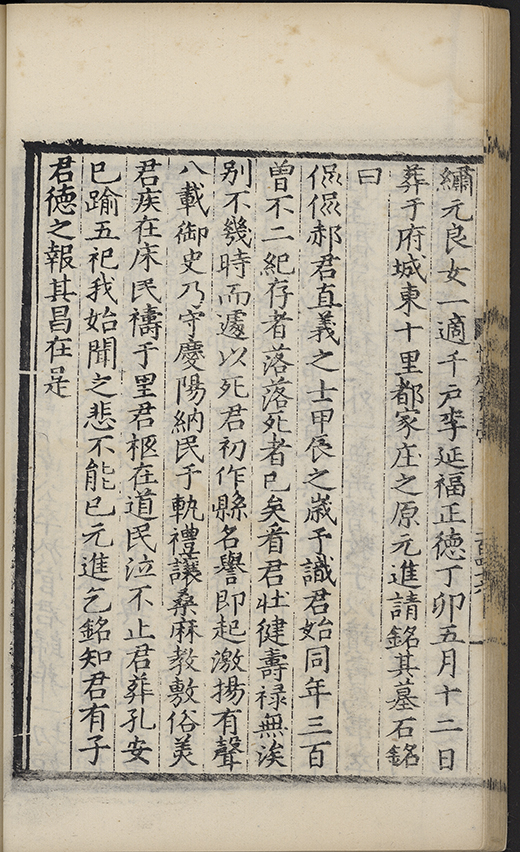 繡元良女一適千戶李延福正德丁卯五月十二日
葬于府城東十里都家庄之原元進請銘其墓石銘
曰
侃侃郝君直義之士甲辰之歲予識君始同年三百
曾不二紀存者落落死者已矣看君壯健壽祿無涘
別不幾時而遽以死君初作縣名譽即起激揚有聲
八載御史乃守慶陽納民于軌禮讓桑麻教敷俗美
君疾在床民禱于里君柩在道民泣不止君葬孔安
已踰五祀我始聞之悲不能已元進乞銘知君有子
君德之報其昌在是